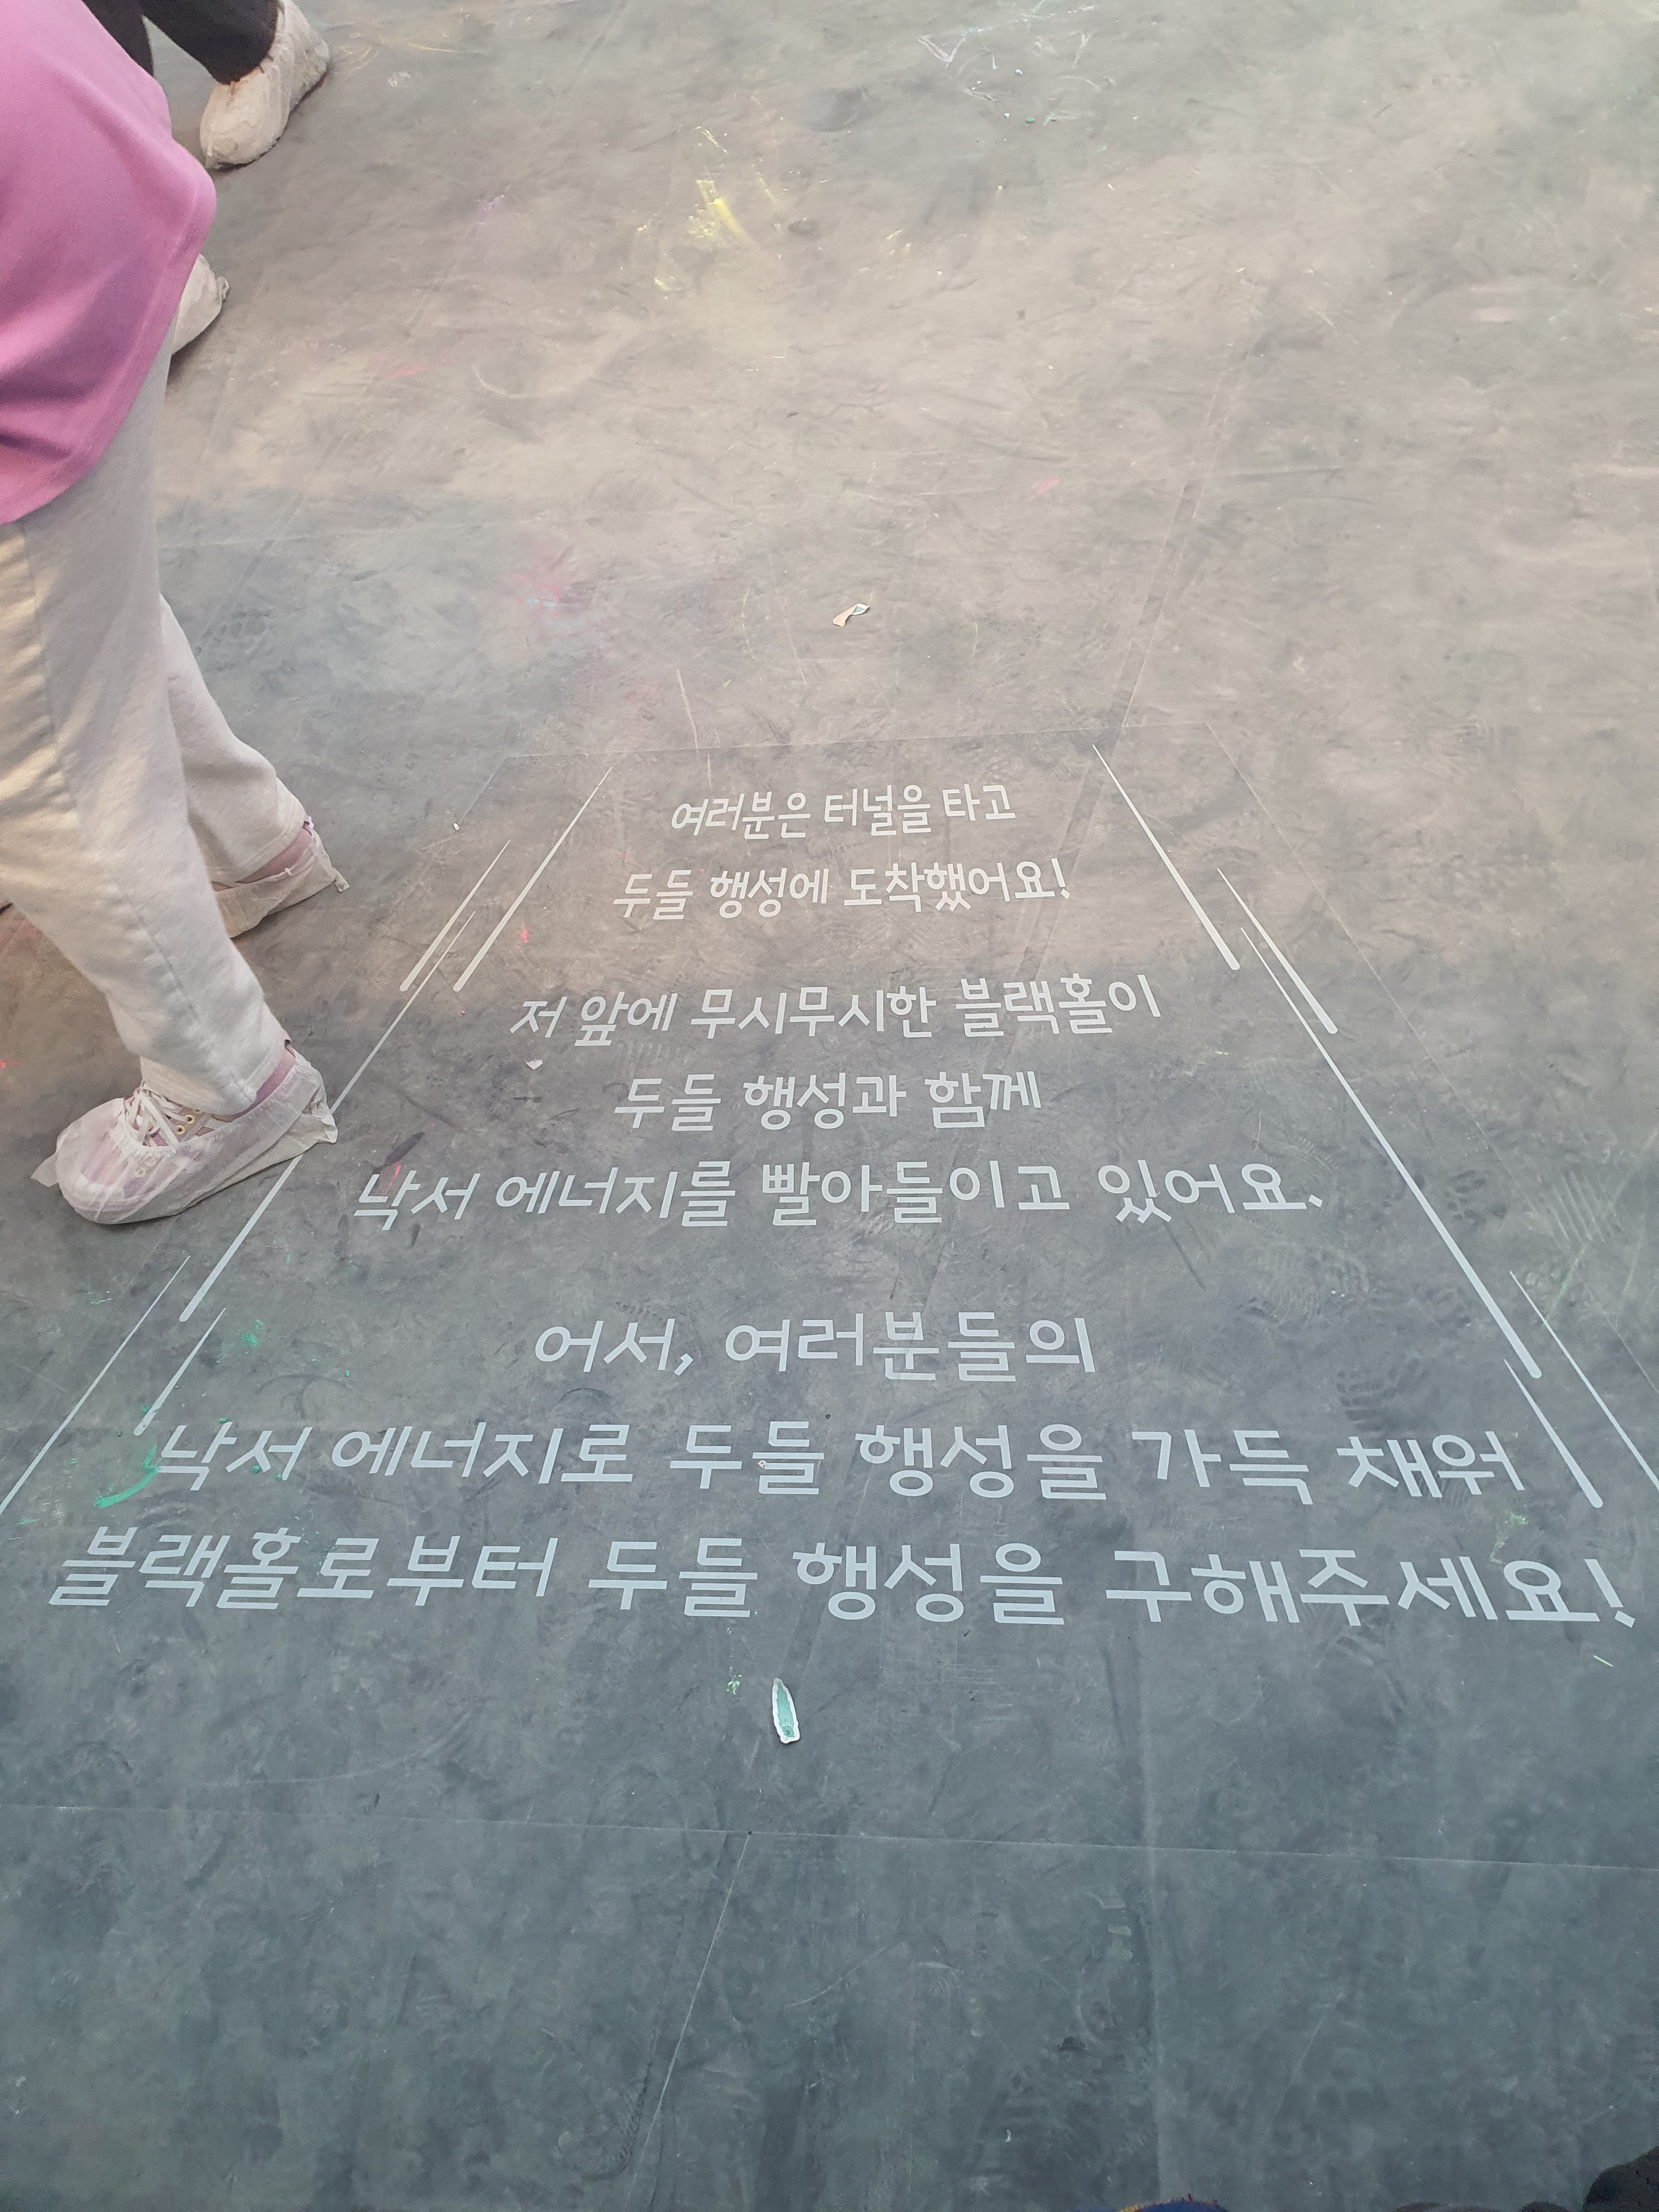 여러분은 터널을 타고
두들 행성에 도착했어요!
저 앞에 무시무시한 블랙홀이
두들 행성과 함께
낙서 에너지를 빨아들이고 있어요.
어서, 여러분들의
낙서 에너지로 두들 행성을 가득 채워
블랙홀로부터 두들 행성을 구해주세요!